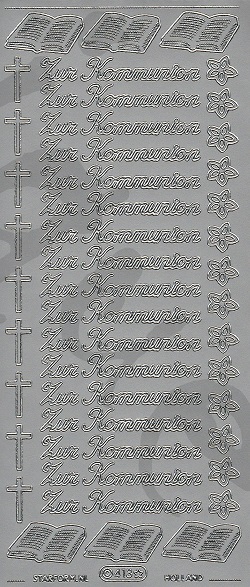 Zur Kommunion
Zur Kommunion
Zur Kommunion
Zur Kommunion
Zur Kommunion
Zur Kommunion
Zur Kommunion
Zur Kommunion
Zur Kommunion
Zur Kommunion
Zur Kommunion
Zur Kommunion
Zur Kommunion
Zur Kommunion
Zur Kommunion
Zur Kommunion
Zur Kommunion
STARFORM.NL 413 HOLLAND